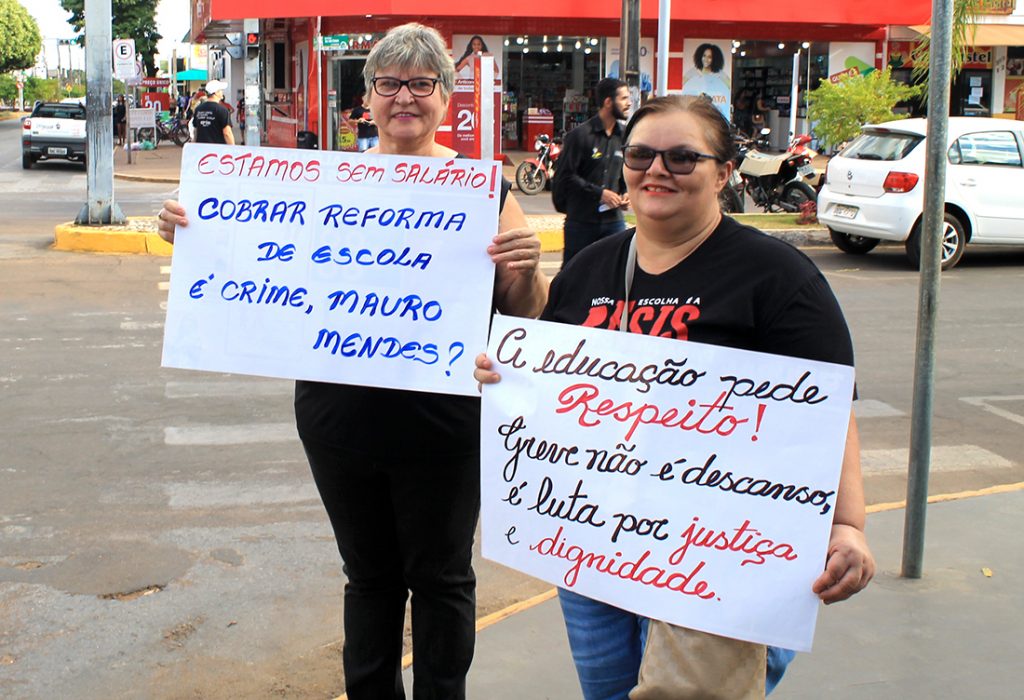 ESTAMOS SEM SALÁRIO!
COBRAR REFORMA
DE ESCOLA
É CRIME, MAURO
MENDES?
NOSSA ESCOLHA É A
A educação pede
Respeito!
Greve não é descanso,
é luta por justiça
e dignidade.
E
20